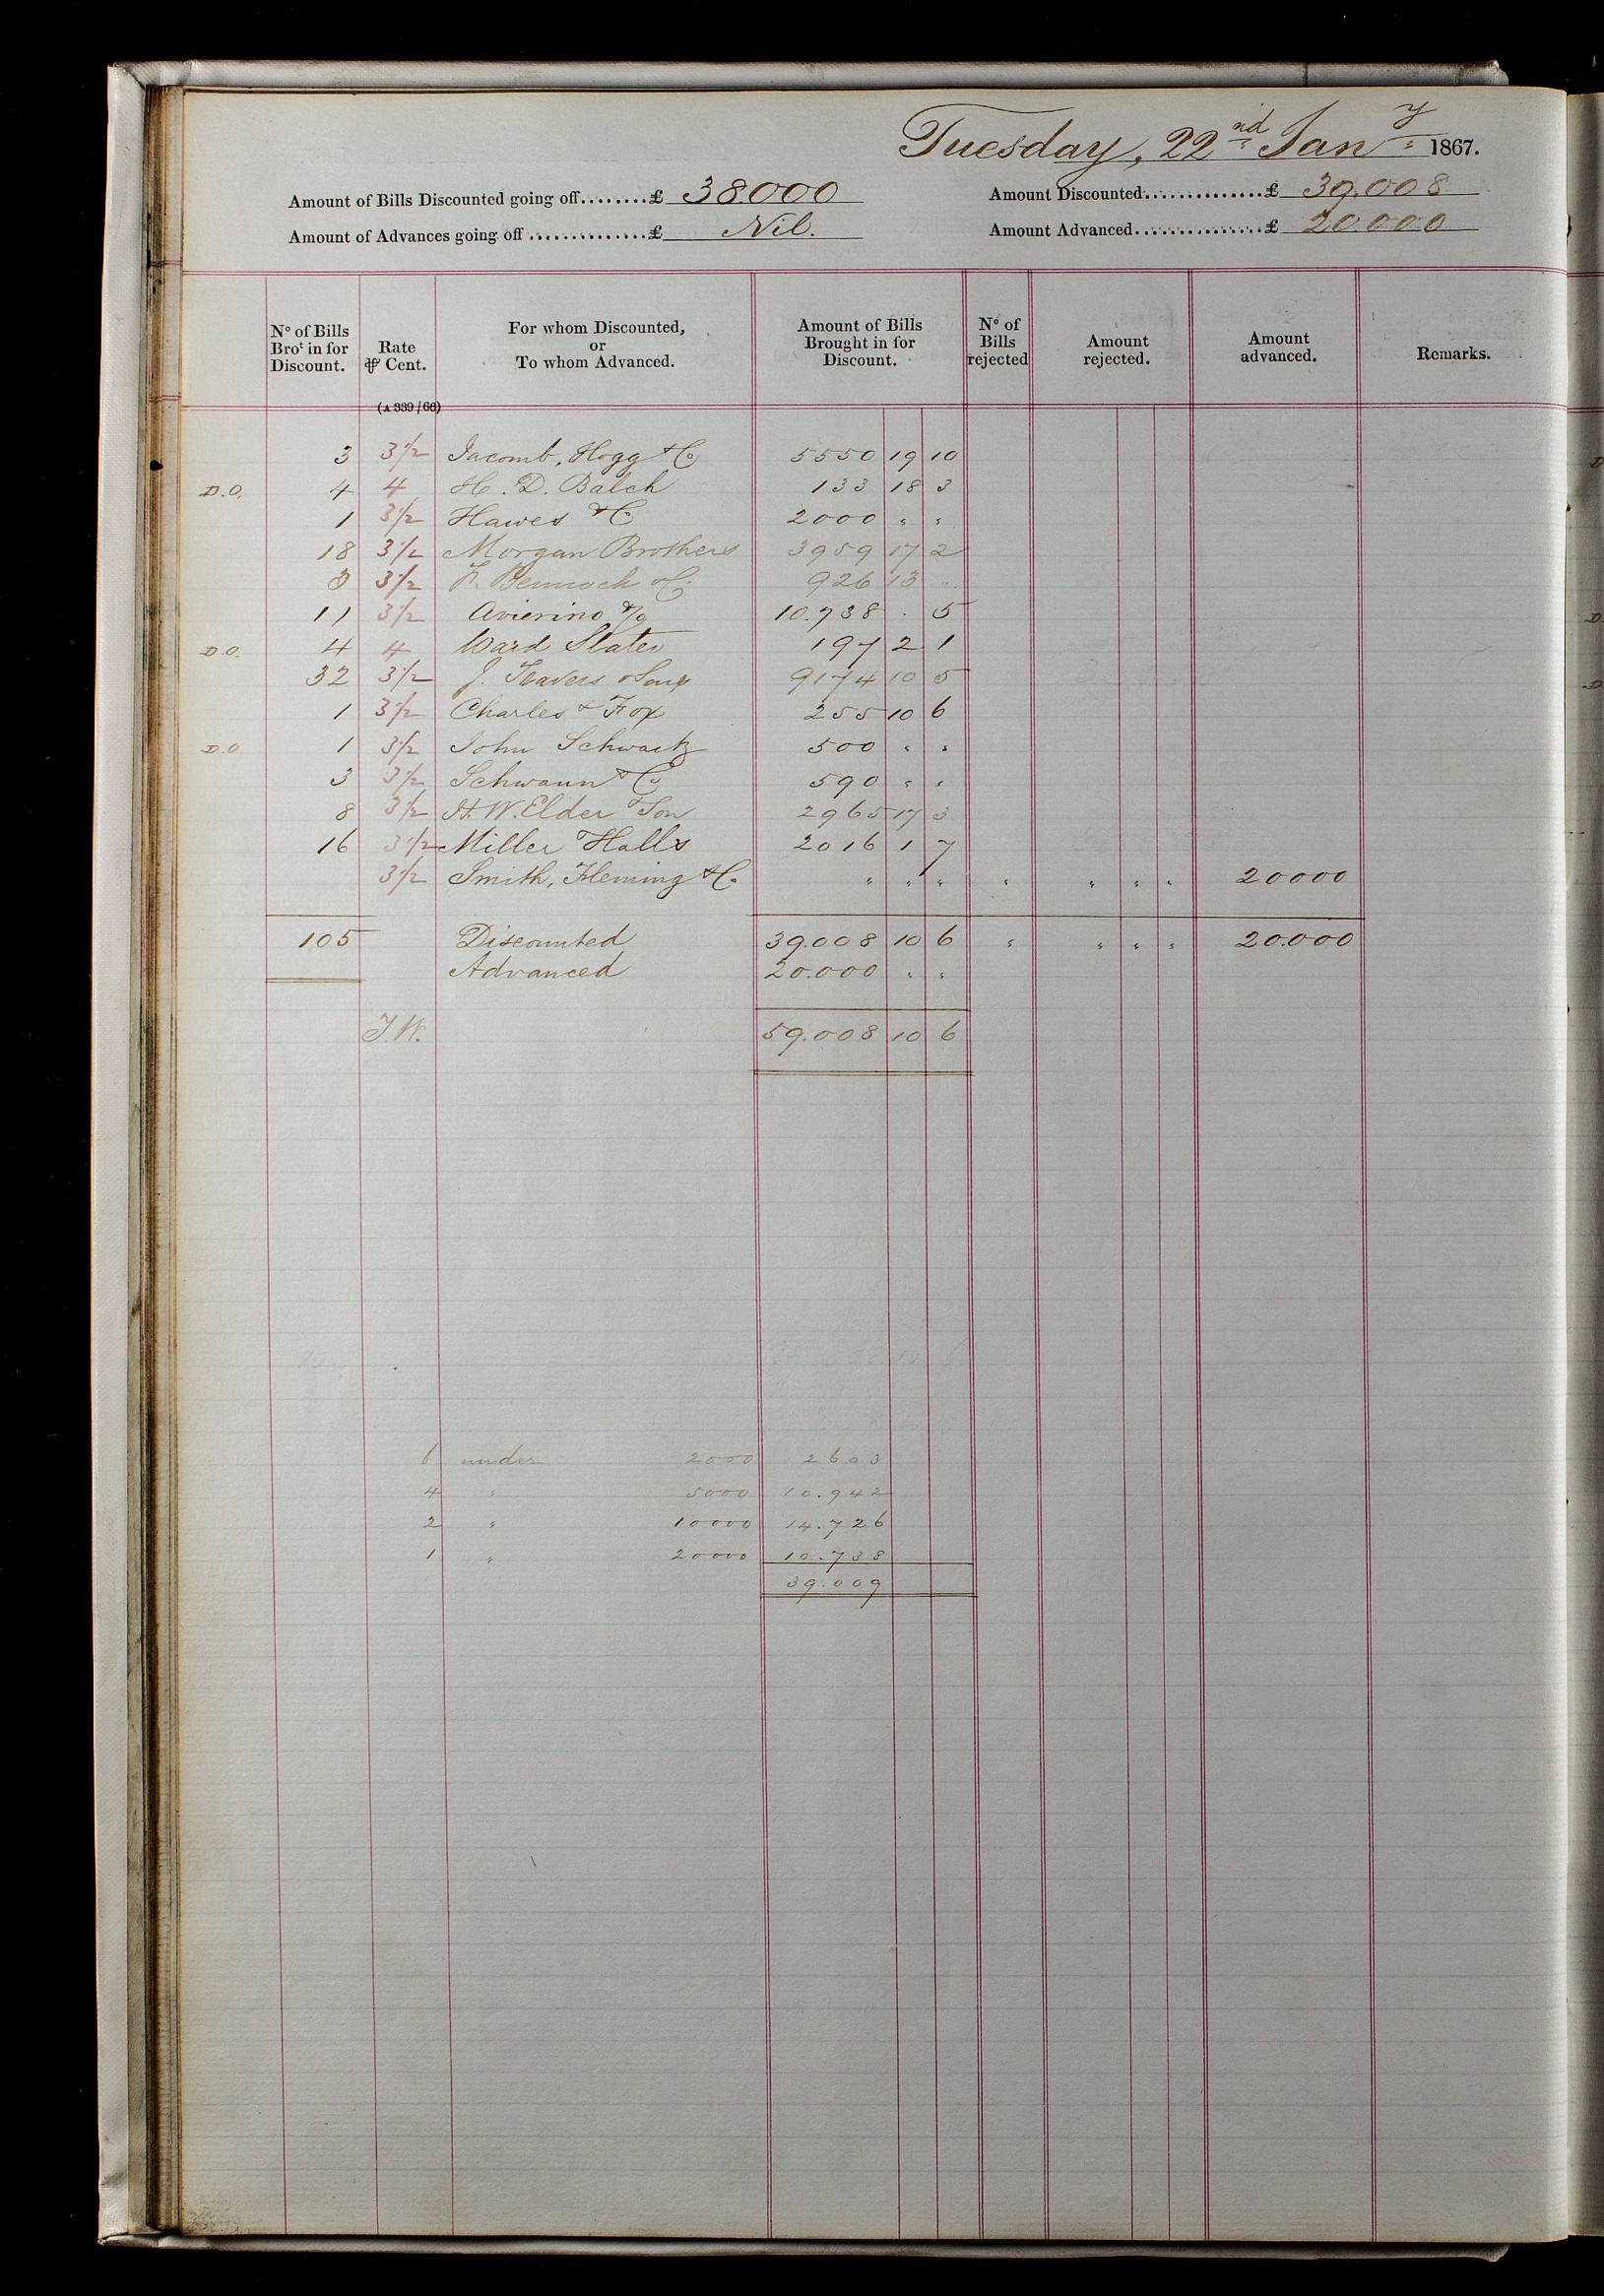 Tuesday, 22nd Jany 1867.
Amount of Bills Discounted going off........£ 38000 Amount Discounted..............£ 39.008
Amount of Advances going off ..............£ Nil. Amount Advanced................£ 20.000
No of Bills Brot in for Discount. Rate ⅌ Cent. For whom Discounted, or To whom Advanced. Amount of Bills Brought in for Discount. No of Bills rejected Amount rejected. Amount advanced. Remarks.
(A 339/66)
3 3½ Jacomb, Hogg & Co 5550 19 10
D.O. 4 4 H. D. Balch 133 18 3
1 3½ Hawes & Co 2000 " "
18 3½ Morgan Brothers 3959 17 2
3 3½ F. Bennoch & Co 926 13 "
11 3½ Avierino & Co 10.738 . 5
D.O. 4 4 Ward Slater 197 2 1
32 3½ J. Travers & Sons 9174 10 5
1 3½ Charles & Fox 255 10 6
D.O. 1 3½ John Schwartz 500 " "
3 3½ Schwann & Co 590 " "
8 3½ H. W. Elder & Son 2965 17 3
16 3½ Miller Halls 2016 1 7
3½ Smith, Fleming & Co " " " " " " " 20000
105 Discounted 39.008 10 6 " " " " 20.000
Advanced 20.000 " "
J.W. 59.008 10 6
6 under 2000 2603
4 " 5000 10.942
2 " 10000 14.726
1 " 20000 10.738
39.009